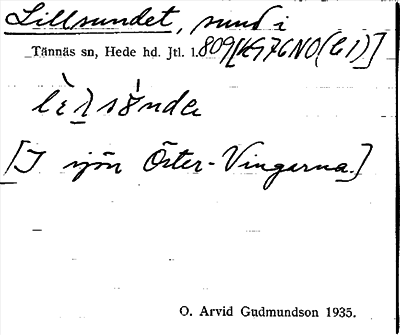 Lillsundet, sund i
Tännäs sn, Hede hd. Jtl. 1.809 [KG76NO(b1)]
[I sjön Öster-Vingarna.]
O. Arvid Gudmundson 1935.